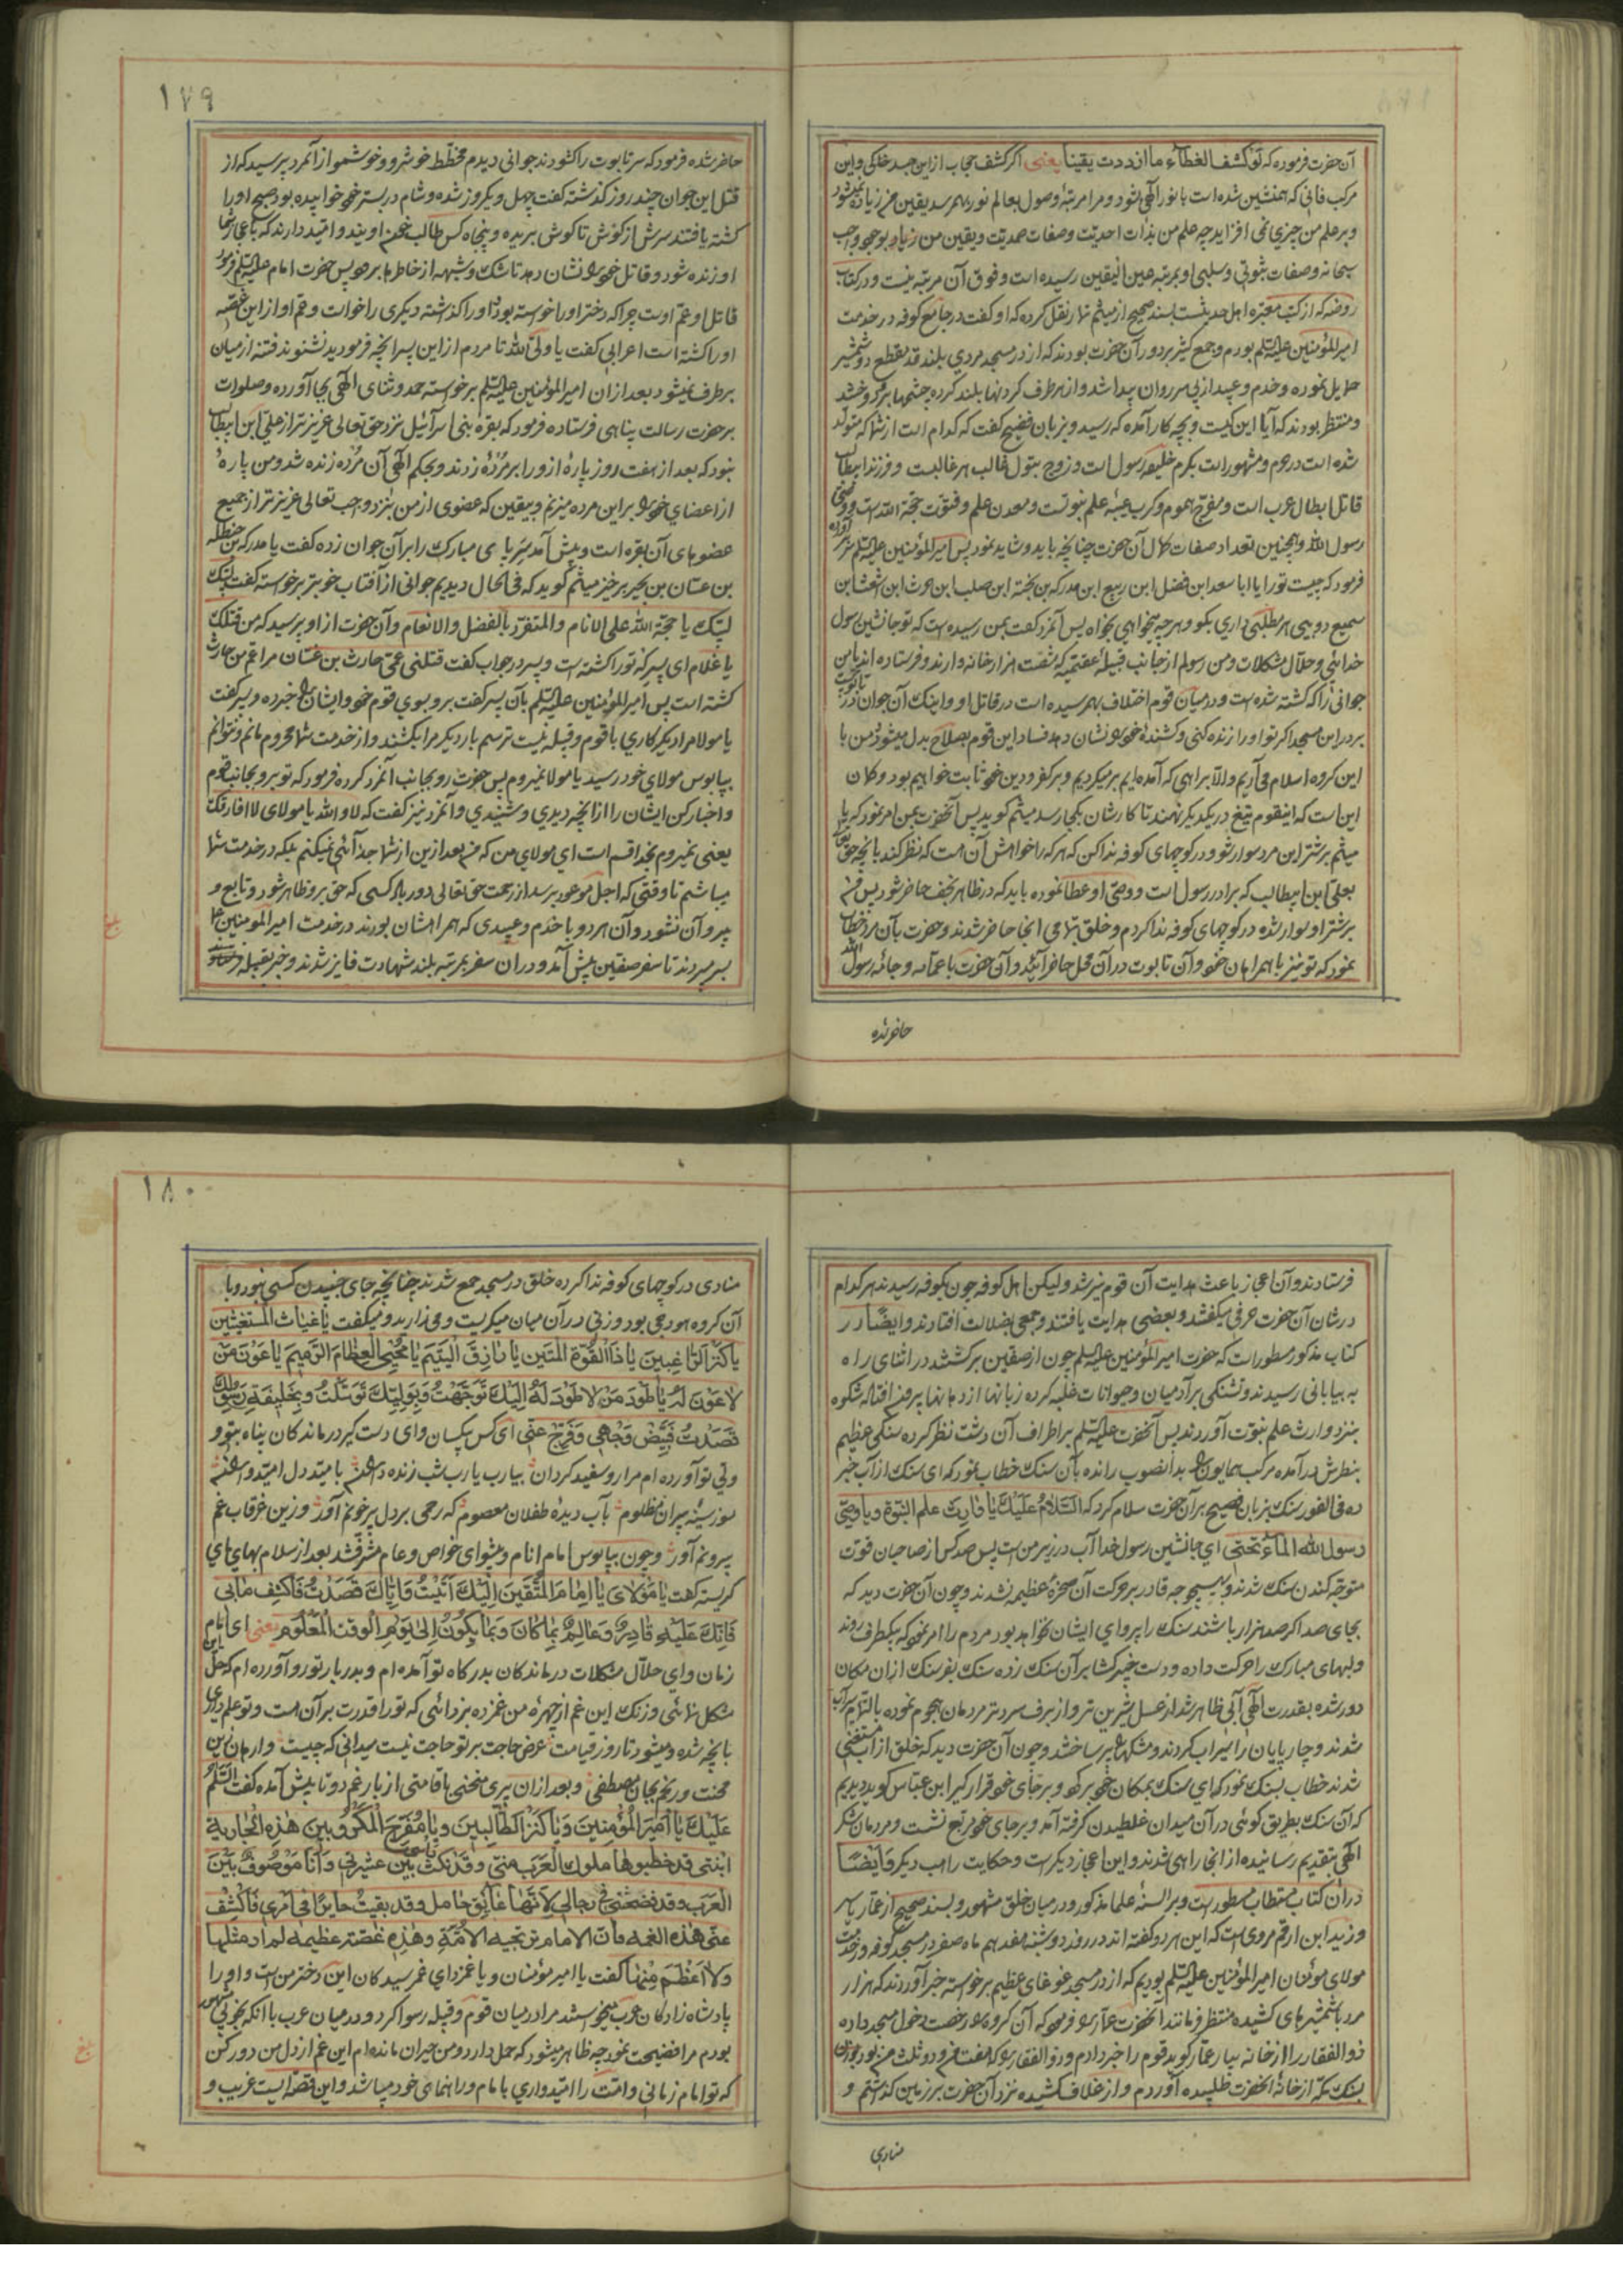 آن حضرت فرموده که لو کشف الغطاء ما ازددت یقینا یعنی اگر کشف حجاب از این جسد خاکی و این
مرکب فانی که همنشین شده است با نور الهی شود و مرا مرتبهٔ وصول بعالم نور بهم رسد یقین من زیاده نمیشود
و بر علم من چیزی نمی افزاید چه علم من بذات احدیت و صفات صمدیت و یقین من بوجود واجب
سبحانه و صفات ثبوتی و سلبی او بمرتبه عین الیقین رسیده است و فوق آن مرتبه نیست و در کتاب
روضه که از کتب معتبره اهل حدیثست بسند صحیح از میثم تمار نقل کرده که او گفت در جامع کوفه در خدمت
امیرالمؤمنین علیه السلم بودم و جمع کثیر بر دور آن حضرت بودند که از در مسجد مردی بلند قد بقطع دو شمشیر
حمایل نموده و خدم و عبید از پی سر روان پیدا شد و از هر طرف گردنها بلند کرده چشمها بر وی دوخته شد
و منتظر بودند که آیا این کیست و بچه کار آمده که رسید و بزبان فصیح گفت که کدام است از شما که متولد
شده است در حرم و مشهور است بکرم خلیفه رسول است و زوج بتول غالب هر غالبست و فرزند ابیطالب
قاتل ابطال عرب است و مفرج هموم و کرب عیبه علم نبوتست و معدن علم و فتوت حجة الله است و وصی
رسول الله و همچنین تعداد صفات کمال آن حضرت چنانچه باید و شاید نمود پس امیرالمؤمنین علیه السلم سر برآورده
فرمود که چیست تو را یا ابا سعد ابن فضل ابن ربیع ابن مدرکه بن نجبه ابن صلب ابن حوث ابن اشعث ابن
سمیع دوسی هر مطلبی داری بگو و هر چه میخواهی بخواه پس آنمرد گفت بمن رسیده است که تو جانشین رسول
خدائی و حلّال مشکلات و من رسولم از جانب قبیلهٔ عقیمه که شصت هزار خانه وارند و فرستاده اند با من
جوانی را که کشته شده است و در میان قوم اختلاف بهم رسیده است در قاتل او و اینک آن جوان در تابوت
بر در این مسجد اگر تو او را زنده کنی و کشندهٔ خود را نشان دهد فساد این قوم بصلاح بدل میشود و من با
این گروه اسلام می آریم و الّا براهی که آمده ایم بر میگردیم و بر کفر و دین خود ثابت خواهیم بود و گمان
این است که اینقوم تیغ در یکدیگر نهند تا کارشان بکجا رسد میثم گوید پس آنحضرت بمن امر نمود که یا
میثم بر شتر این مرد سوار شو و در کوچهای کوفه ندا کن که هر که را خواهش آن است که نظر کند بآنچه حق تعالی
بعلی ابن ابیطالب که برادر رسول است و وصی او عطا نموده باید که در ظاهر نجف حاضر شود پس من
بر شتر او سوار شده در کوچهای کوفه ندا کردم و خلق بتمامی آنجا حاضر شدند و حضرت بآن مرد خطاب
نمود که تو نیز با همراهان خود و آن تابوت در آن محل حاضر آئید و آن حضرت با عمامه و جامه رسول الله
حاضر شده
۱۷۹
حاضر شده فرمود که سر تابوت را گشودند جوانی دیدم مخطّط خوشرو و خوشمو از آنمرد پرسید که از
قتل این جوان چند روز گذشته گفت چهل و یکروز شده و شام در بستر خود خوابیده بود صبح او را
کشته یافتند سرش از گوش تا گوش بریده و پنجاه کس طالب خون اویند و امید دارند که باعجاز شما
او زنده شود و قاتل خود را نشان دهد تا شک و شبهه از خاطرها بر طرف شود پس حضرت امام علیه السلم فرمود
قاتل او عم اوست چرا که دختر او را خواسته بود و او را گذاشته دیگری را خواست و عم او از این غصّه
او را کشته است اعرابی گفت یا ولی الله تا مردم از این پسر آنچه فرمودید نشنوند فتنه از میان
بر طرف نمیشود بعد از ان امیرالمؤمنین علیه السلم برخواسته حمد و ثنای الهی بجا آورده و صلوات
بر حضرت رسالت پناهی فرستاده فرمود که بقرهٔ بنی اسرائیل نزد حق تعالی عزیزتر از علی ابن ابیطالب
نبود که بعد از هفت روز پارهٔ از او را بر مردهٔ زدند و بحکم الهی آن مرده زنده شد و من پارهٔ
از اعضای خود را بر این مرده میزنم و بیقین که عضوی از من نزد واجب تعالی عزیزتر از جمیع
عضوهای آن بقره است و پیش آمد سر پای مبارک را بر آن جوان زده گفت یا مدرکه بن حنظله
بن غسّان بن بحیر برخیز میثم گوید که فی الحال دیدیم جوانی از آفتاب خوبتر برخواسته گفت لبیک
لبیک یا حجة الله علی الانام و المتفرّد بالفضل و الانعام و آن حضرت از او پرسید که من قتلک
یا غلام ای پسر که تو را کشته است و پسر در جواب گفت قتلنی عمی حارث بن غسّان مرا عم من حارث
کشته است پس امیرالمؤمنین علیه السلم بآن پسر گفت برو بسوی قوم خود و ایشان را خبر ده و پسر گفت
یا مولا مرا دیگر کاری با قوم و قبیله نیست ترسم بار دیگر مرا بکشند و از خدمت شما محروم مانم و نتوانم
بپابوس مولای خود رسید یا مولا نمیروم پس حضرت رو بجانب آنمرد کرده فرمود که تو برو بجانب قوم
و اخبار کن ایشان را از آنچه دیدی و شنیدی و آنمرد نیز گفت که لا و الله یا مولای لا افارقک
یعنی نمیروم بخدا قسم است ای مولای من که من بعد از این از شما جدائی نمیکنم بلکه در خدمت شما
میباشم تا وقتی که اجل موعود برسد از رحمت حق تعالی دور باد کسی که حق برو ظاهر شود و تابع و
پیرو آن نشود و آن هر دو با خدم و عبیدی که همراهشان بودند در خدمت امیرالمومنین
بسر میبردند تا سفر صفین پیش آمد و در ان سفر بمرتبه بلند شهادت فایز شدند و خبر بقبیله
بلغ
فرستادند و آن اعجاز باعث هدایت آن قوم نیز شد و لیکن اهل کوفه چون بکوفه رسیدند هر کدام
در شان آن حضرت حرفی میگفتند و بعضی هدایت یافتند و جمعی بضلالت افتادند و ایضًا در
کتاب مذکور مسطور است که حضرت امیرالمؤمنین علیه السلم چون از صفین برگشتند در اثنای راه
به بیابانی رسیدند و تشنگی بر آدمیان و حیوانات غلبه کرده زبانها از دهانها بیرون افتاد شکوه
بنزد وارث علم نبوت آوردند پس آنحضرت علیه السلم بر اطراف آن دشت نظر کرده سنگی عظیم
بنظرش در آمده مرکب همایون را بدانصوب رانده بآن سنگ خطاب نمود که ای سنگ از آب خبر
ده فی الفور سنگ بزبان فصیح بر آن حضرت سلام کرد که السلام علیک یا وارث علم النبوة و یا وصی
رسول الله الماء تحتی ای جانشین رسول خدا آب در زیر من است پس صد کس از صاحبان قوت
متوجه کندن سنگ شدند و بهیچوجه قادر بر حرکت آن صخرهٔ عظیمه نشدند و چون آن حضرت دید که
بجای صد اگر صد هزار باشند سنگ را پروای ایشان نخواهد بود مردم را امر نمود که بیکطرف روند
و لبهای مبارک را حرکت داده و دست خیبر گشا بر آن سنگ زده سنگ بفرسنگ از ان مکان
دور شده بقدرت الهی آبی ظاهر شد از عسل شیرین تر و از برف سردتر مردمان هجوم نموده بالتمام سیراب
شدند و چارپایان را سیراب کردند و مشکها پر ساختند و چون آن حضرت دید که خلق از آب مستغنی
شدند خطاب بسنگ نمود که ای سنگ بمکان خود برگرد و بر جای خود قرار گیر ابن عباس گوید دیدیم
که آن سنگ بطریق گوئی در آن میدان غلطیدن گرفته آمد و بر جای خود مربع نشست و مردمان شکر
الهی بتقدیم رسانیده از انجا راهی شدند و این اعجاز دیگر است و حکایت راهب دیگر و ایضًا
در ان کتاب مستطاب مسطور است و بر السنهٔ علما مذکور و در میان خلق مشهور و بسند صحیح از عمار یاسر
و زید ابن ارقم مروی است که این هر دو گفته اند در روز دوشنبه هفدهم ماه صفر در مسجد کوفه در خدمت
مولای مؤمنان امیرالمؤمنین علیه السلم بودیم که از در مسجد غوغای عظیم برخواسته خبر آوردند که هزار
مرد با شمشیرهای کشیده منتظر فرمانند آنحضرت عمّار را فرمود که آن گروه را رخصت دخول مسجد داده
ذو الفقار را از خانه بیار عمّار گوید قوم را خبر دادم و ذو الفقار را که هفت من و دو ثلث من بود بوزن
بسنگ مکّه از خانهٔ آنحضرت طلبیده آوردم و از غلاف کشیده نزد آن حضرت بر زمین گذاشتم و
منادی
۱۸۰
منادی در کوچهای کوفه ندا کرده خلق در مسجد جمع شدند چنانچه جای جنبیدن کسی نبود و با
آن گروه هودجی بود و زنی در آن میان میگریست و می زارید و میگفت یا غیاث المستغیثین
یا کنز الراغبین یا ذا القوة المتین یا رازق الیتیم یا محیی العظام الرمیم یا عون من
لا عون له یا طود من لا طود له الیک توجهت و بولیک توسّلت و بخلیفة رسولک
قصدت فبیّض وجهی و فرّج عنّی ای کس بیکسان و ای دست گیر درماندگان پناه بتو و
ولی تو آورده ام مرا رو سفید گردان بیا رب یا رب شب زنده داران بامید دل امیدواران
بسوز سینه پیران مظلوم بآب دیدهٔ طفلان معصوم که رحمی بر دل پر خونم آور و زین غرقاب غم
بیرونم آور و چون بپابوس امام انام و پیشوای خواص و عام مشرف شد بعد از سلام بهایهای
گریسته گفت یا مولای یا امام المتقین الیک اتیت و ایّاک قصدت فاکشف مابی
فانّک علیه قادر و عالم بما کان و بما یکون الی یوم الوقت المعلوم یعنی ای امام
زمان و ای حلّال مشکلات درماندگان بدرگاه تو آمده ام و بدربار تو رو آورده ام که حل این
مشکل نمائی و زنگ این غم از چهرهٔ من غمزده بزدائی که تو را قدرت بر آن است و تو علم داری
بآنچه شده و میشود تا روز قیامت عرض حاجت بر تو حاجت نیست میدانی که چیست و ارهان زین
محنت و رنجم بجان مصطفی و بعد از ان پیری منحنی با قامتی از بار غم دوتا پیش آمده گفت السّلم
علیک یا امیر المؤمنین و یا کنز الطالبین و یا مفرّج المکروبین هذه الجاریة
ابنتی قد خطبوها ملوک العرب منّی و قد نکث راسی بین عشیرتی و انا موصوف بین
العرب و قد فضحتنی فی رجالی لانّها عاتق حامل و قد بقیت حایرًا فی امری فاکشف
عنّی هذه الغمّه فانّ الامام ترتجیه الامّة و هذه غصّة عظیمه لم ار مثلها
و لا اعظم منها گفت یا امیر مؤمنان و یا غمزدای غمرسیدگان این دختر من است و او را
پادشاه زادگان عرب میخواستند مرا در میان قوم و قبیله رسوا کرد و در میان عرب با آنکه بخوبی مشهور
بودم مرا فضیحت نمود چه ظاهر میشود که حمل دارد و من حیران مانده ام این غم از دل من دور کن
که تو امام زمانی و امّت را امیدواری بامام و راهنمای خود میباشد و این قصّه ایست غریب و
بلغ